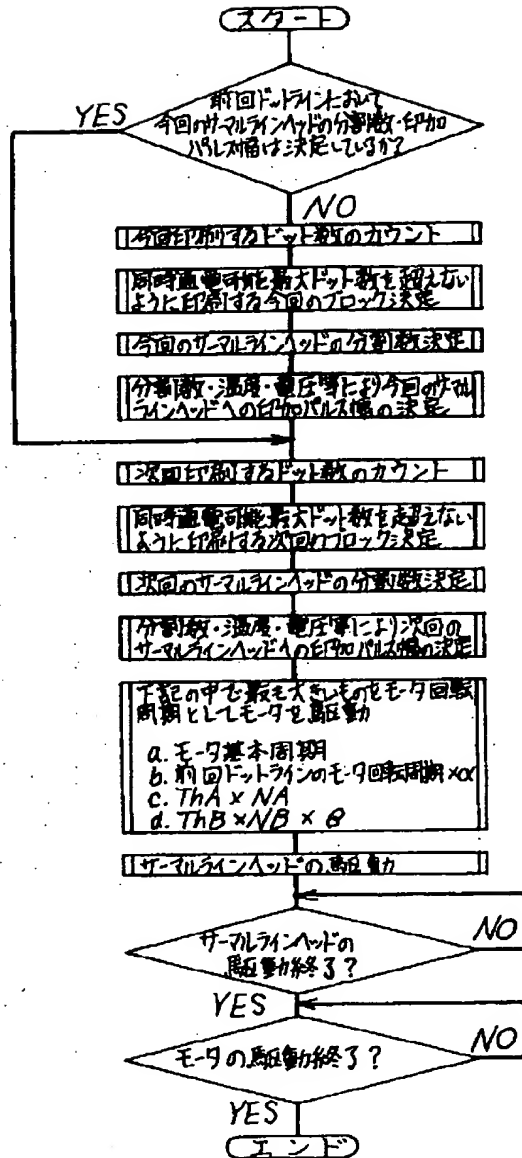 スタート
前回ドットラインにおいて
今回のサーマルラインヘッドの分割数・印加
パルス幅は決定しているか?
YES
NO
今回印刷するドット数のカウント
同時通電可能最大ドット数を超えない
ように印刷する今回のブロック決定
今回のサーマルラインヘッドの分割数決定
分割数・温度・電圧等により今回のサーマル
ラインヘッドへの印加パルス幅の決定
次回印刷するドット数のカウント
同時通電可能最大ドット数を超えない
ように印刷する次回のブロック決定
次回のサーマルラインヘッドの分割数決定
分割数・温度・電圧等により次回の
サーマルラインヘッドへの印加パルス幅の決定
下記の中で最も大きいものをモータ回転
周期としてモータを駆動
a. モータ基本周期
b. 前回ドットラインのモータ回転周期×α
c. ThA × NA
d. ThB × NB × β
サーマルラインヘッドの駆動
サーマルラインヘッドの
駆動終了?
NO
YES
モータの駆動終了?
NO
YES
エンド